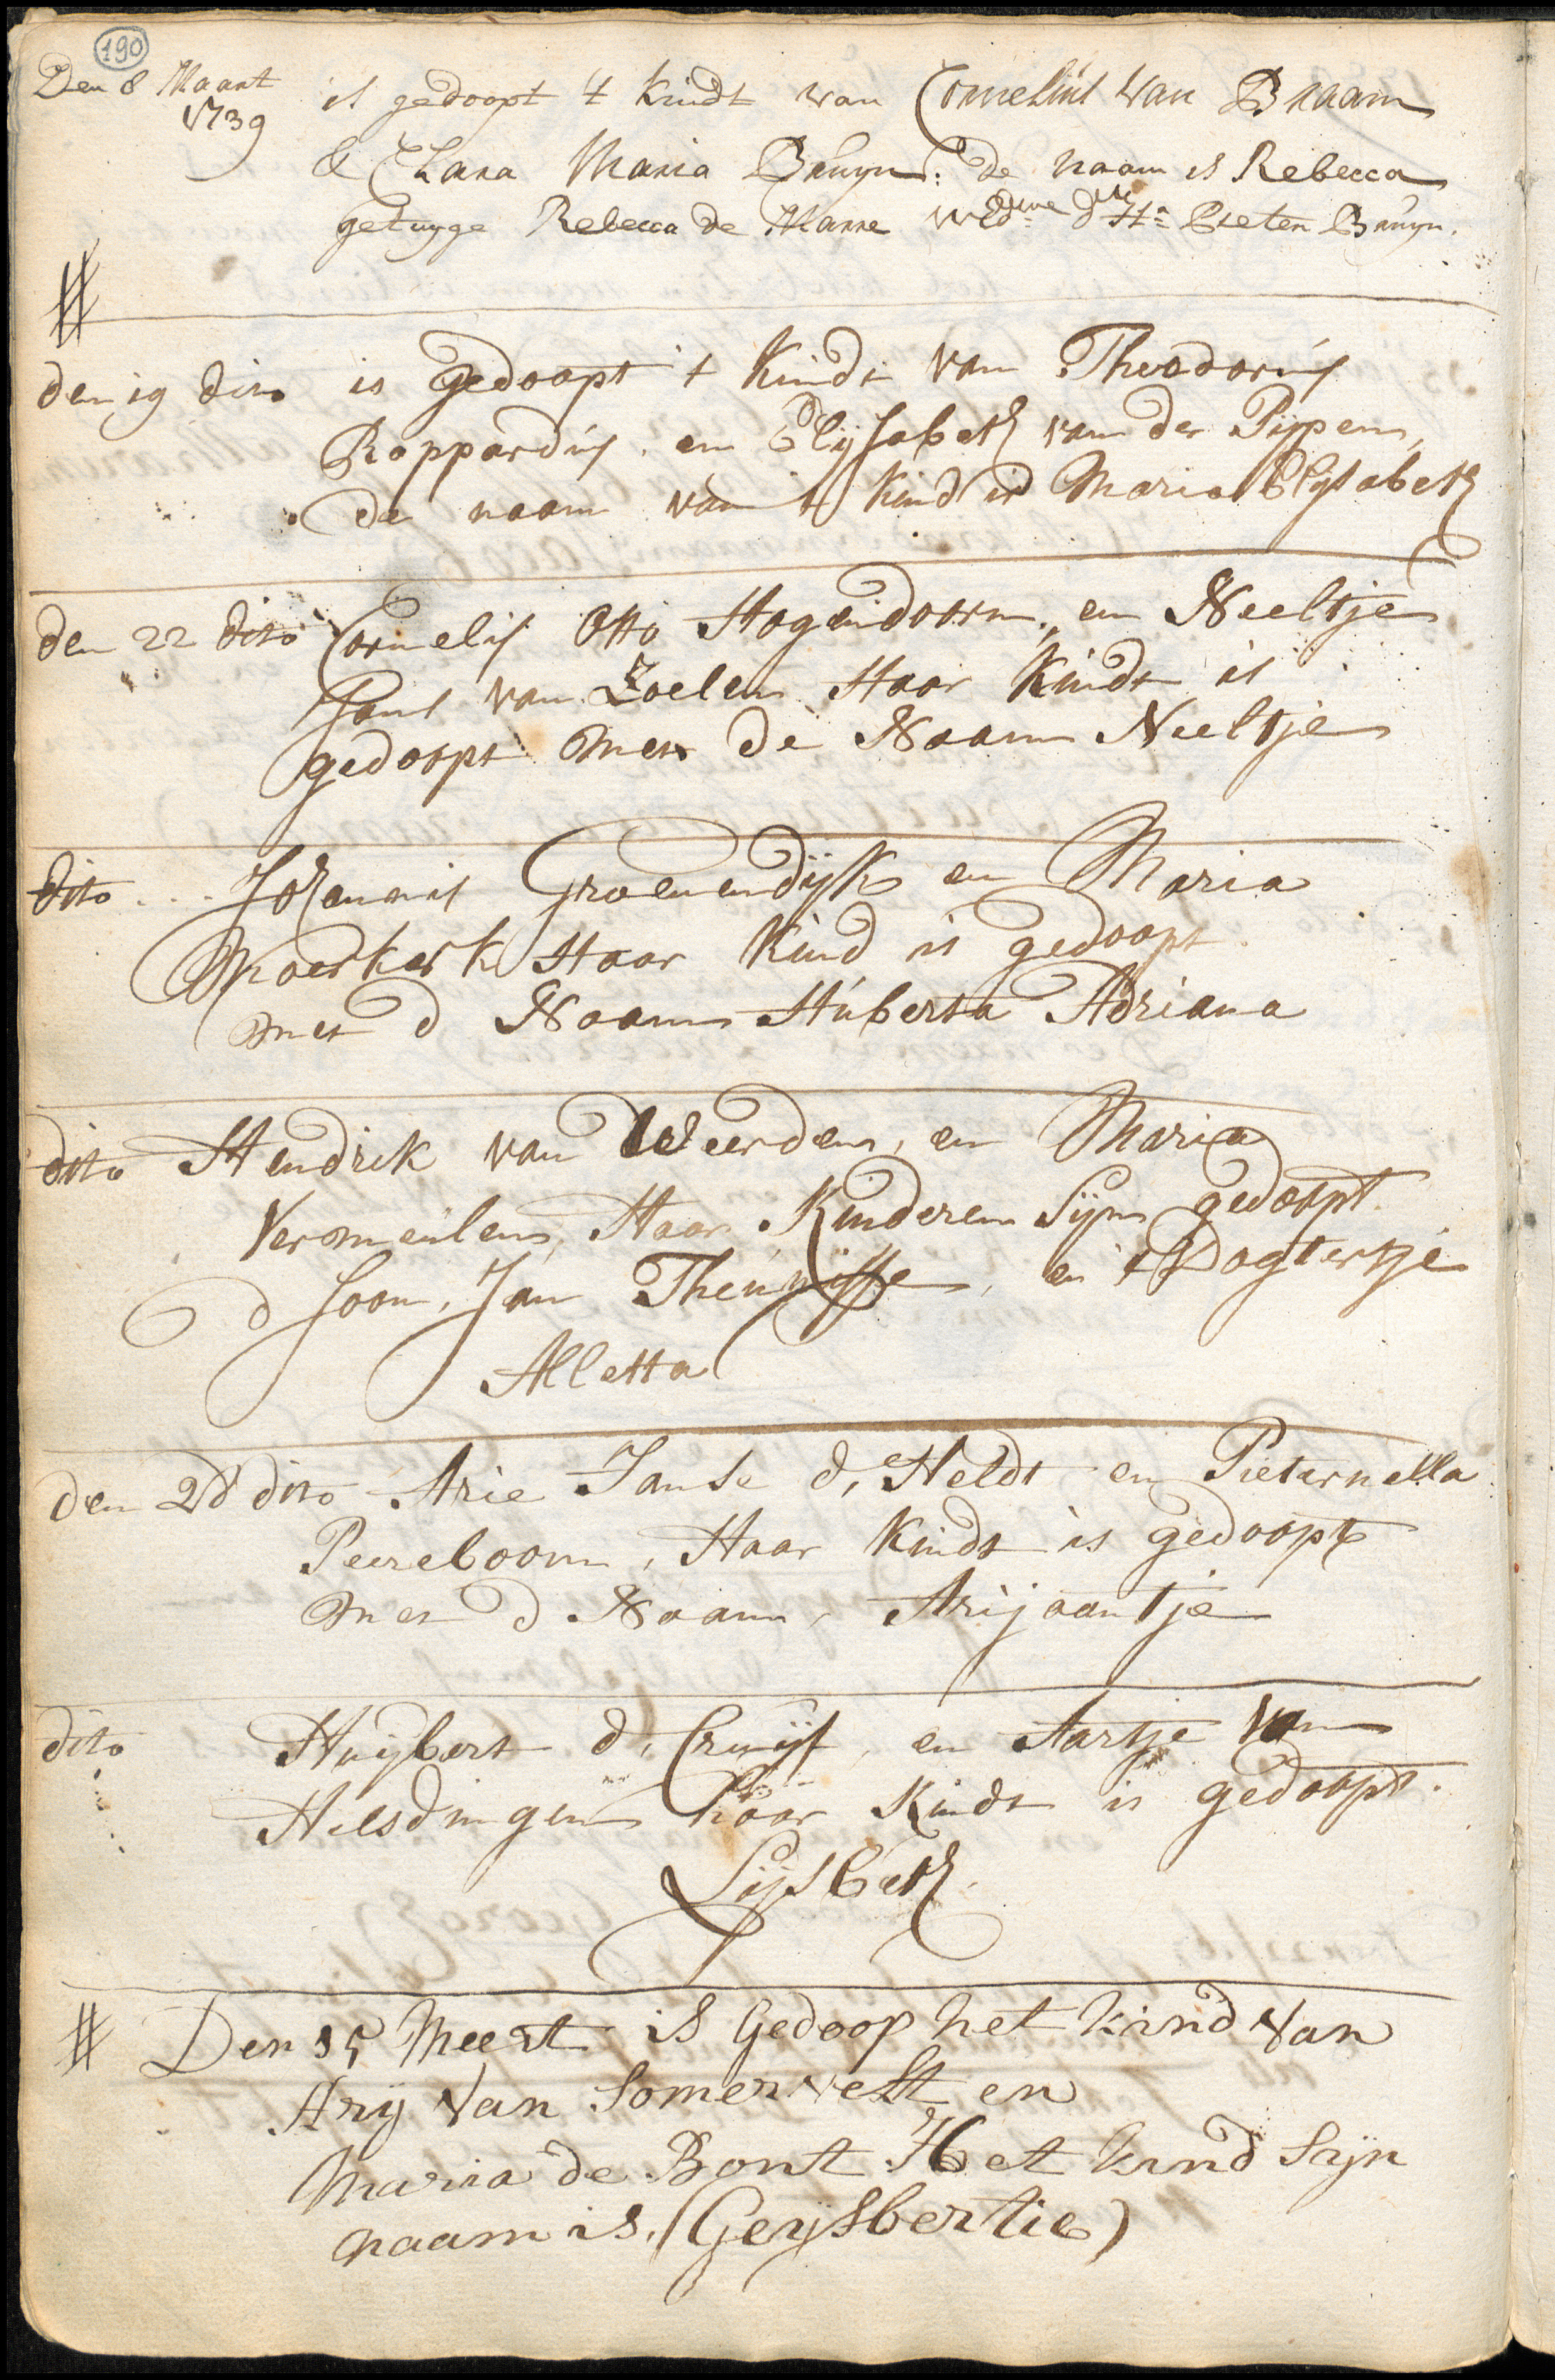 190
Den 8 Maart is gedoopt 't kindt van Cornelius van Braam
1739
& Clara Maria Bruyn: de naam is Rebecca
getuyge Rebecca de Marre Pieter Bruyn.
#
den 19 dito is gedoopt 't kindt van Theodorus
Roppardus, en Elijsabeth van der Pijpen,
de naam van 't kind is Maria Elysabeth
den 22 dito Cornelis Otto Hogendoorn, en Neeltje
Jans van Zoelen Haar kindt is
gedoopt met de Naam Neeltje
dito... Johannis Groenendijk en Maria
Moerkerk Haar kind is gedoopt
met d Naam Huberta Adriana
dito Hendrik van Weerden, en Maria
Vermeulen, Haar Kinderen Sijn gedoopt.
d soon, Jan Theunisse, en 't Dogtertje
Alletta
den dito Arie Janse d, Heldt en Pieternella
Peereboom, Haar kindt is gedoopt
met d Naam, Arijaantje
dito Huijbert d, Cruijf, en Aartje van
Helsdingen haar Kindt is gedoopt.
Lijsbeth
# Den 15 Meert is Gedoop het kind van
Arij van Somervelt en
Maria de Bont Het kind Sijn
naam is. (Geijsbertie)